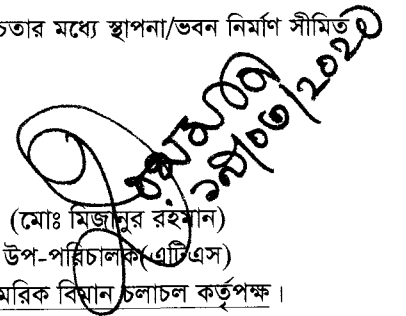 চতার মধ্যে স্থাপনা/ভবন নির্মাণ সীমিত
(মোঃ মিজানুর রহমান)
উপ-পরিচালক(এটিএস)
মরিক বিমান চলাচল কর্তৃপক্ষ।